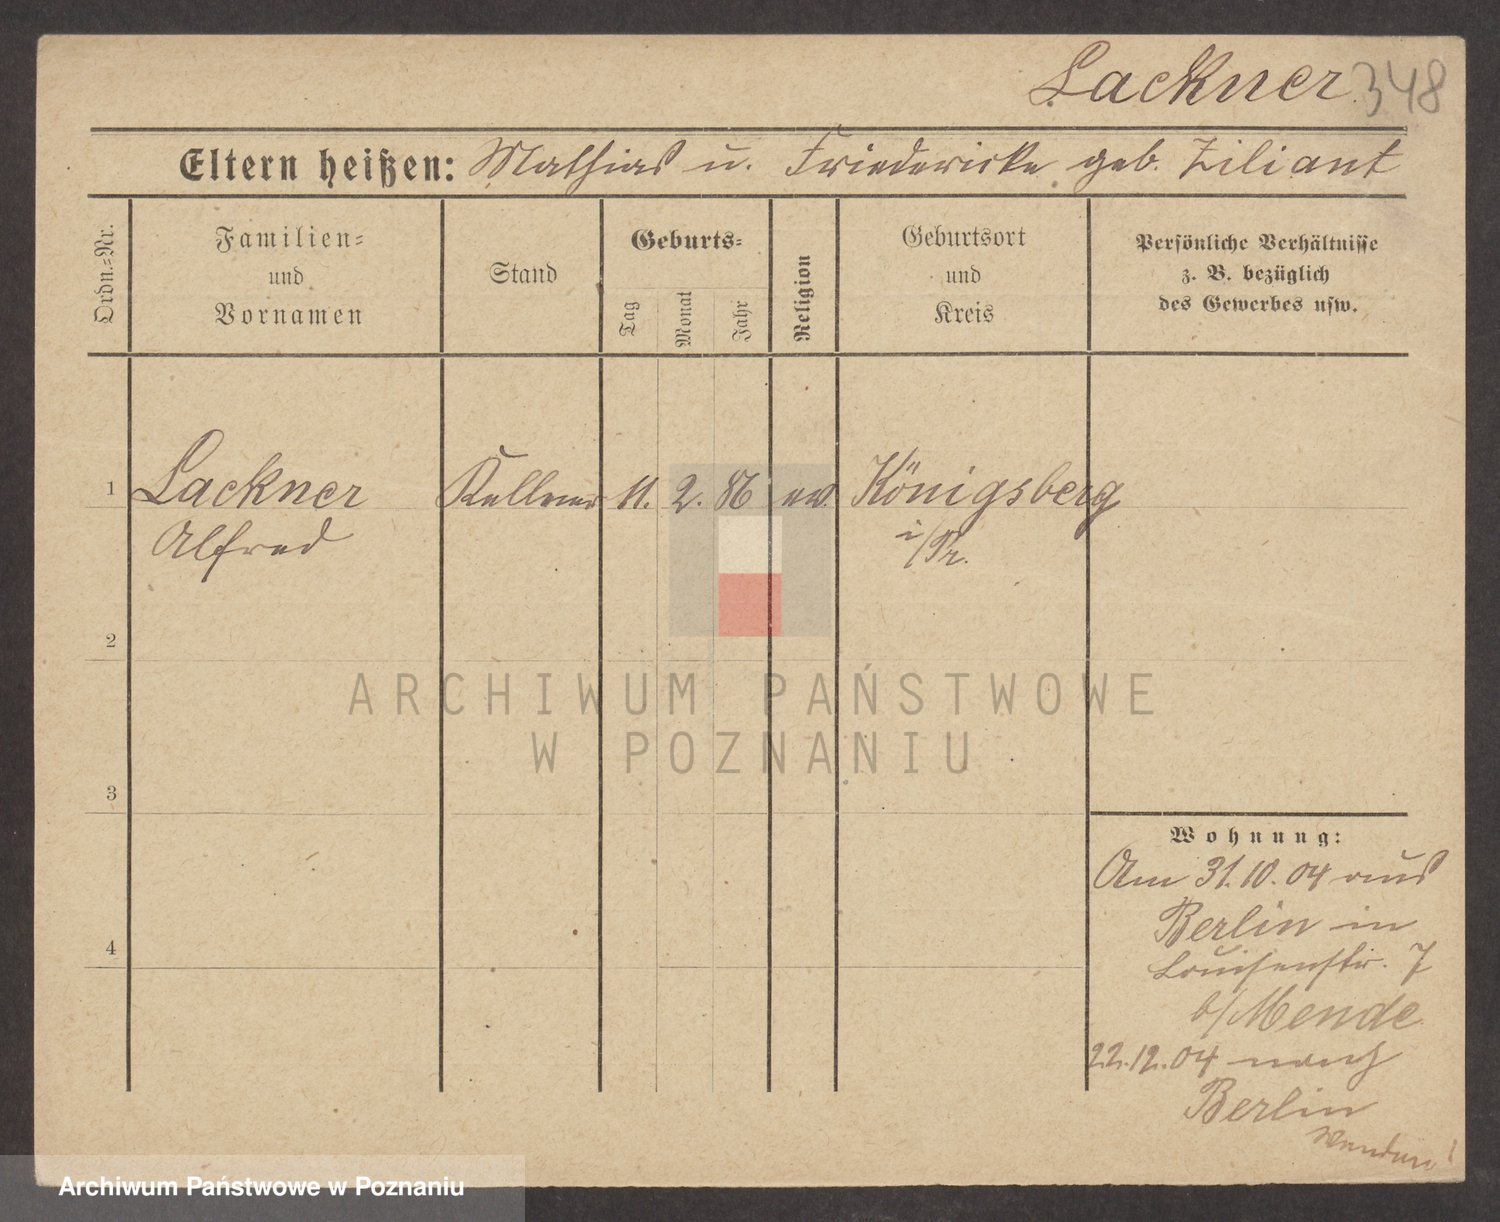 Lackner 348
Eltern heißen: Mathias u. Friedericke geb. Ziliant
Ordn.-Nr.
Familien-
und
Vornamen
Stand
Geburts-
Tag
Monat
Jahr
Religion
Geburtsort
und
Kreis
Persönliche Verhältnisse
z. B. bezüglich
des Gewerbes usw.
1 Lackner Kellner 11. 2. 86 ev. Königsberg
Alfred i/Pr.
2
3
4
Wohnung:
Am 31.10.04 aus
Berlin in
Louisenstr. 7
b/Mende
22.12.04 nach
Berlin
Wenden!
ARCHIWUM PAŃSTWOWE
W POZNANIU
Archiwum Państwowe w Poznaniu